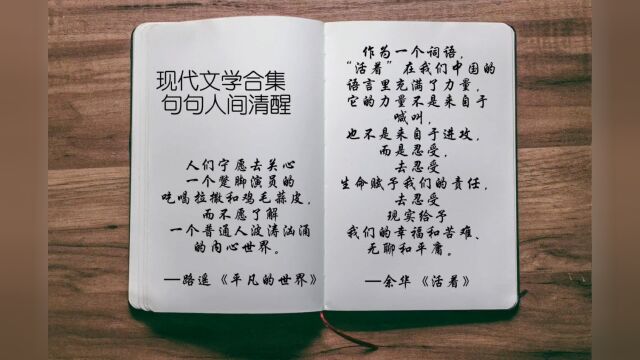 现代文学合集
句句人间清醒
人们宁愿去关心
一个蹩脚演员的
吃喝拉撒和鸡毛蒜皮，
而不愿了解
一个普通人波涛汹涌
的内心世界。
—路遥《平凡的世界》
作为一个词语，
“活着”在我们中国的
语言里充满了力量，
它的力量不是来自于
喊叫，
也不是来自于进攻，
而是忍受，
去忍受
生命赋予我们的责任，
去忍受
现实给予
我们的幸福和苦难、
无聊和平庸。
—余华《活着》